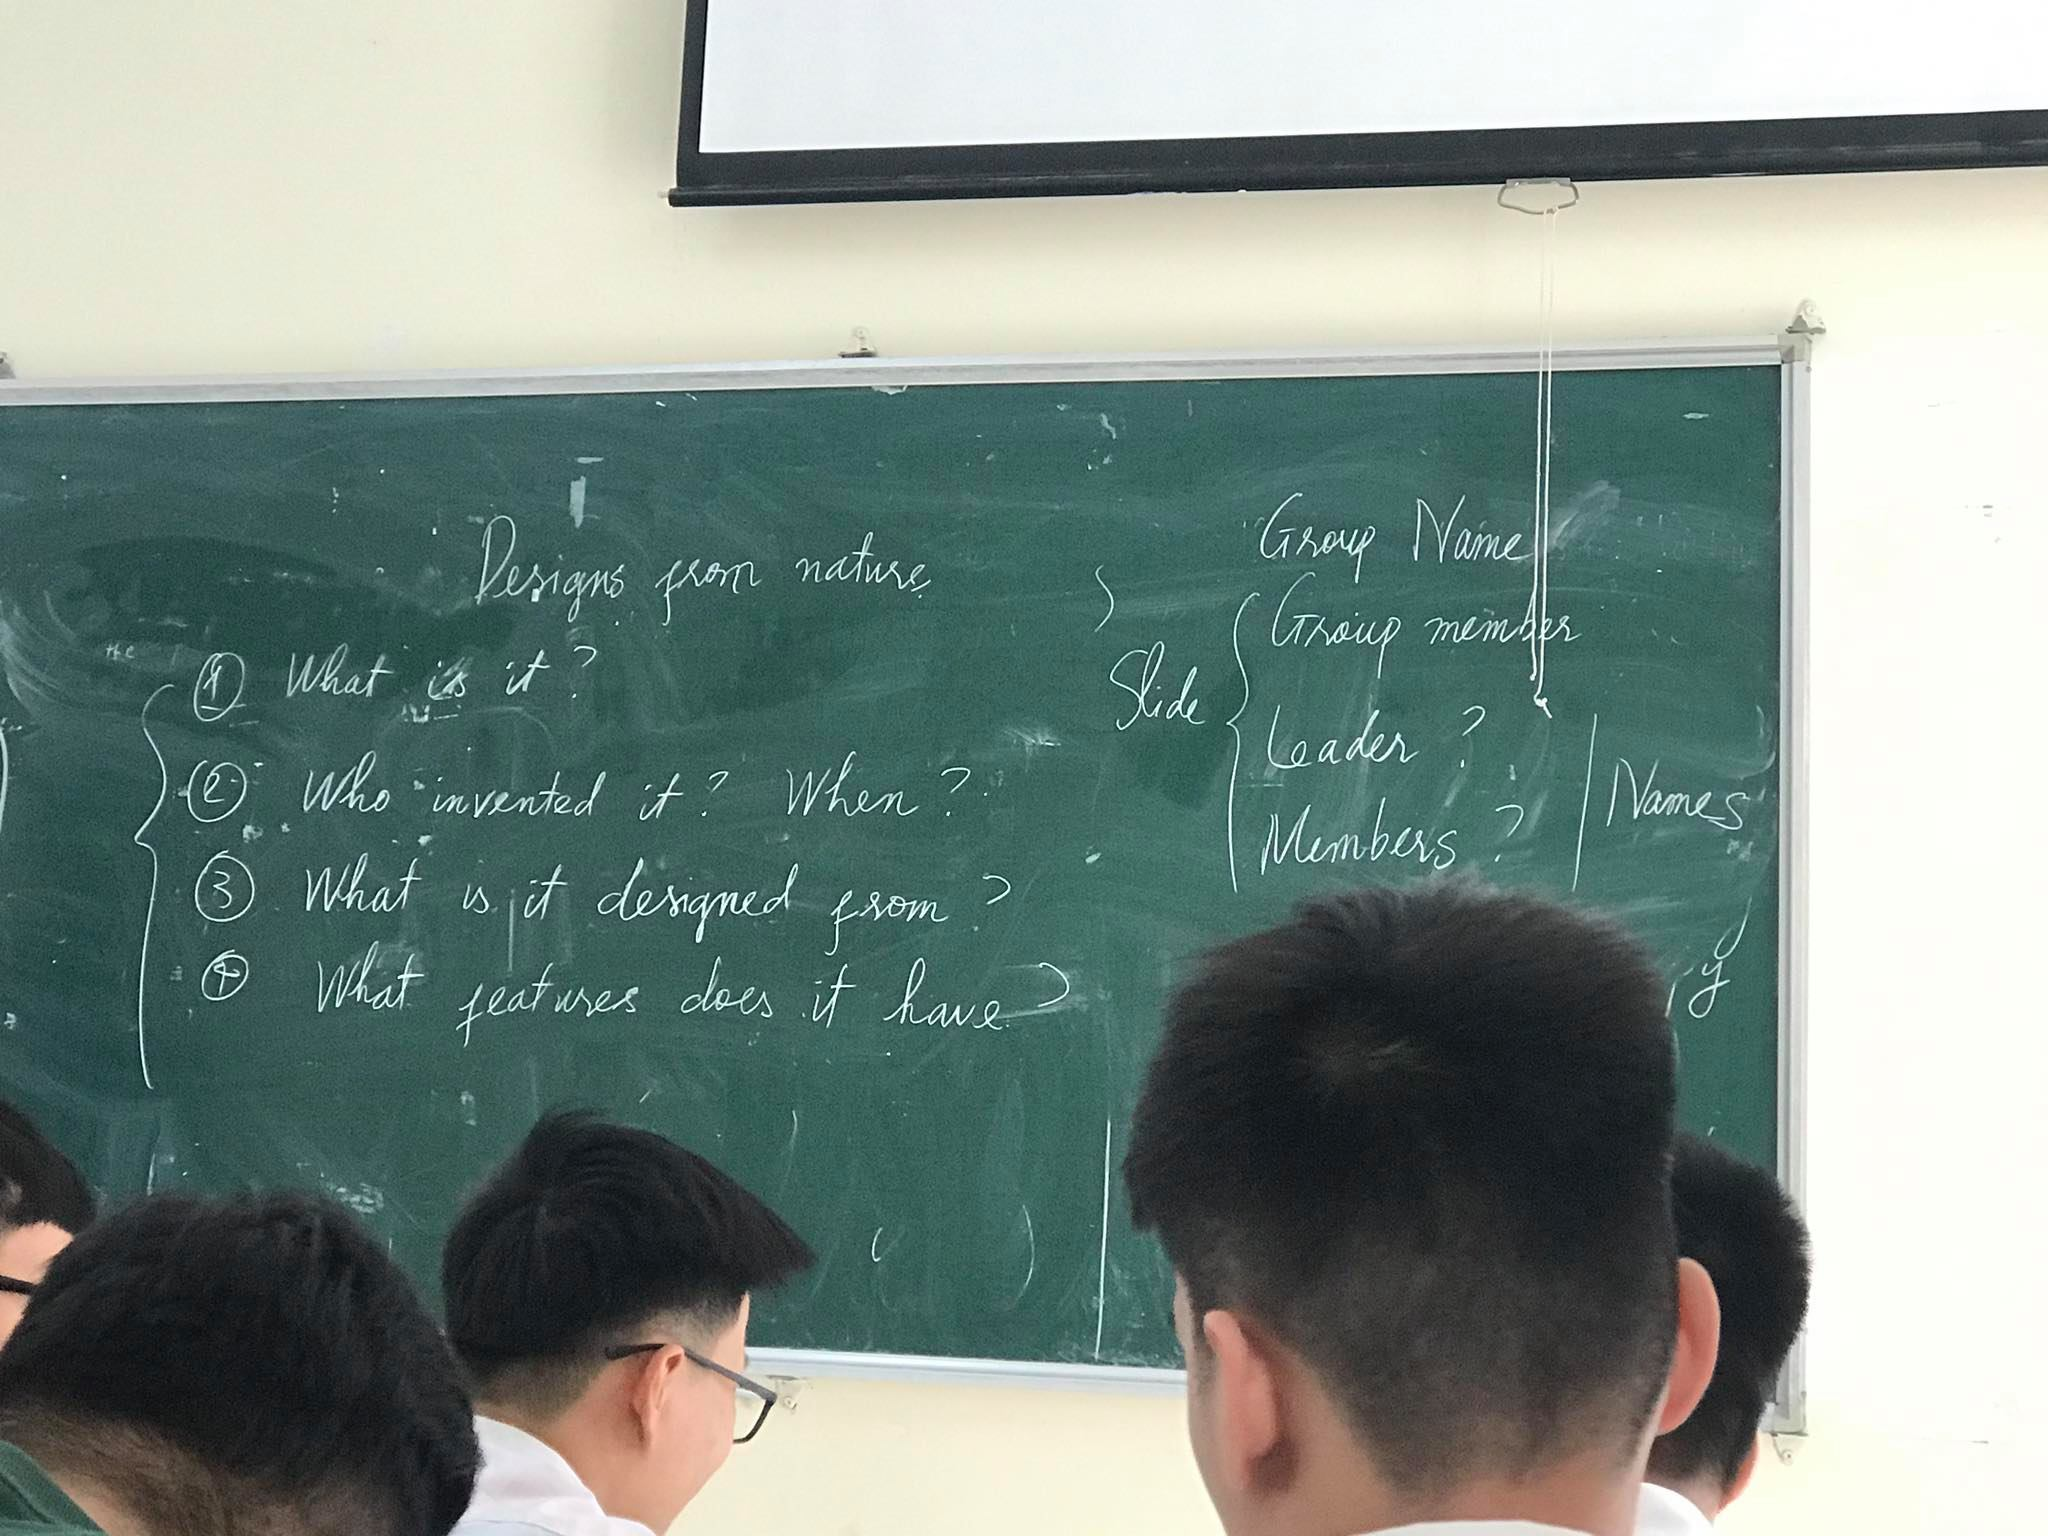 Designs from nature
① What is it?
② Who invented it? When?
③ What is it designed from?
④ What features does it have?
Group Name
Slide
Group member
Leader?
Members?
Names